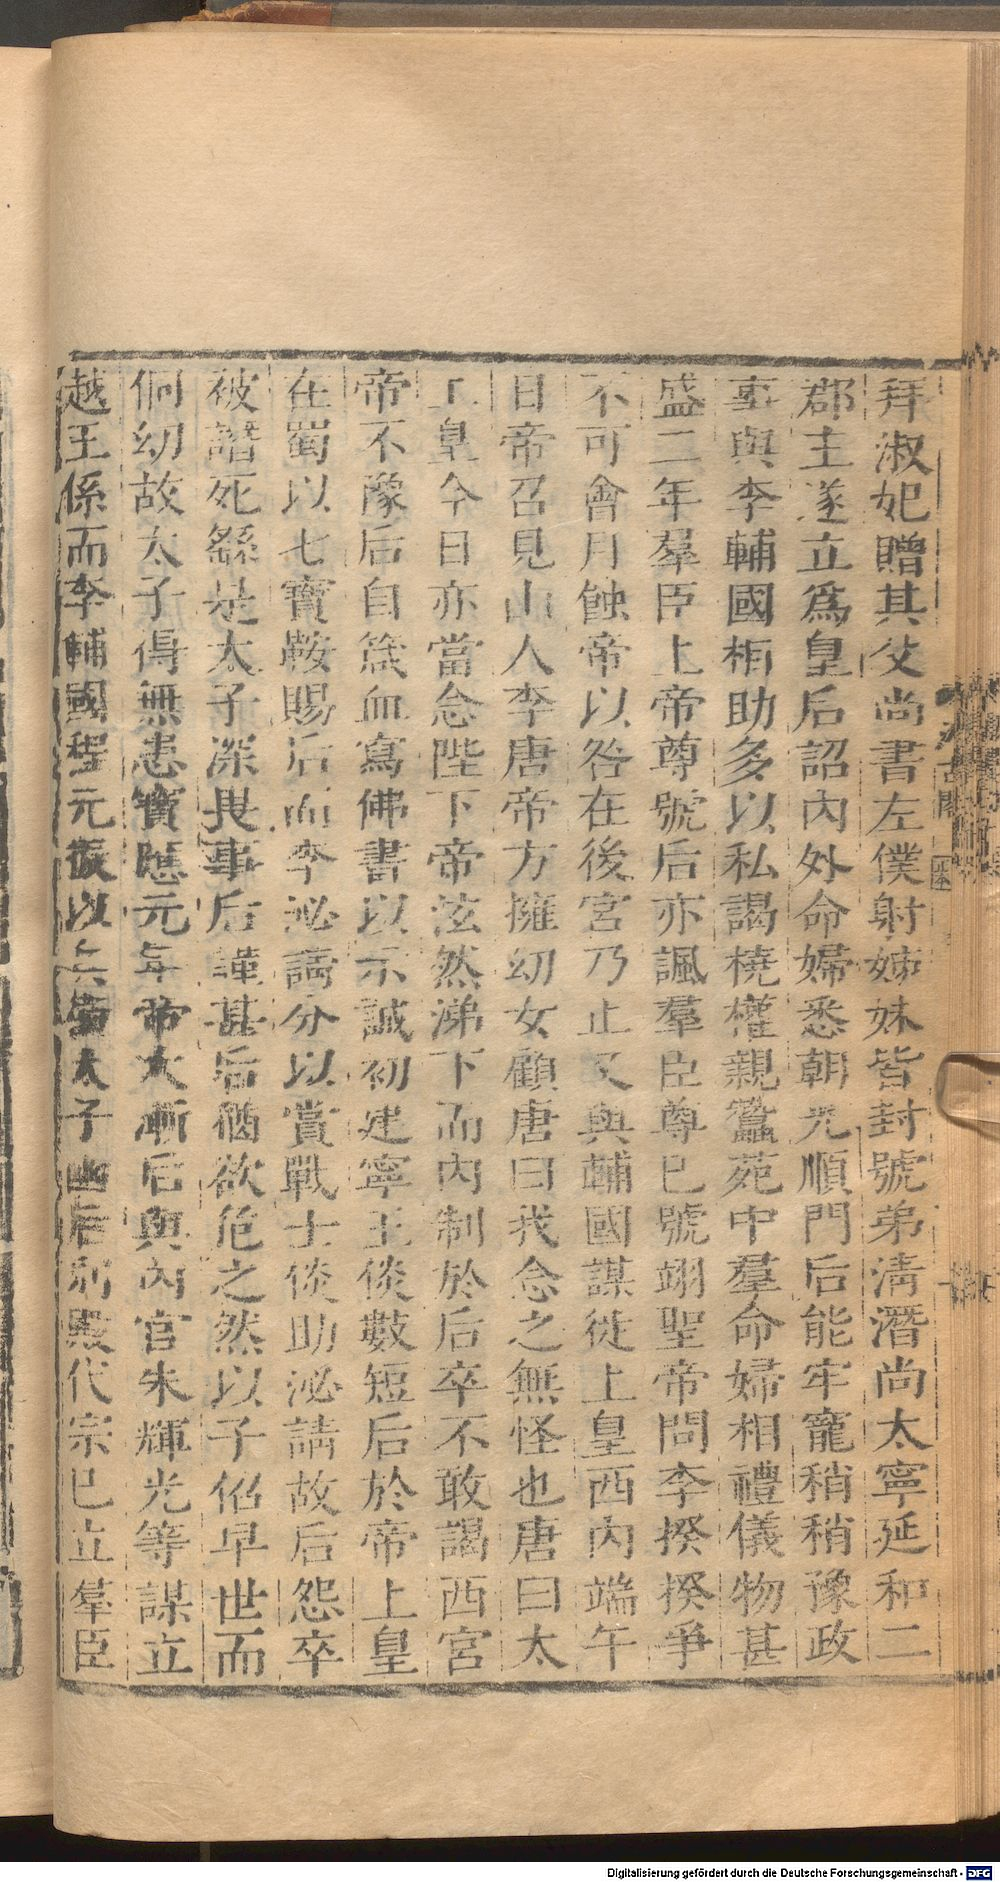 拜淑妃贈其父尚書左僕射姊妹皆封號弟清潛尚太寧延和二
郡主遂立爲皇后詔內外命婦悉朝光順門后能牢寵稍稍豫政
事與李輔國相助多以私謁橈權親蠶苑中羣命婦相禮儀物甚
盛二年羣臣上帝尊號后亦諷羣臣尊已號翊聖帝問李揆揆爭
不可會月蝕帝以咎在後宮乃止又與輔國謀徙上皇西內端午
日帝召見山人李唐帝方擁幼女顧唐曰我念之無怪也唐曰太
上皇今日亦當念陛下帝泫然涕下而內制於后卒不敢謁西宮
帝不豫后自箴血寫佛書以示誠初建寧王倓數短后於帝上皇
在蜀以七寶鞍賜后而李泌請分以賞戰士倓助泌請故后怨卒
被譖死繇是太子深畏事后謹甚后猶欲危之然以子佋早世而
侗幼故太子得無患寶應元年帝大漸后與內官朱輝光等謀立
越王係而李輔國程元振以兵衛太子幽后別殿代宗已立羣臣
汲古閣
Digitalisierung gefördert durch die Deutsche Forschungsgemeinschaft - DFG